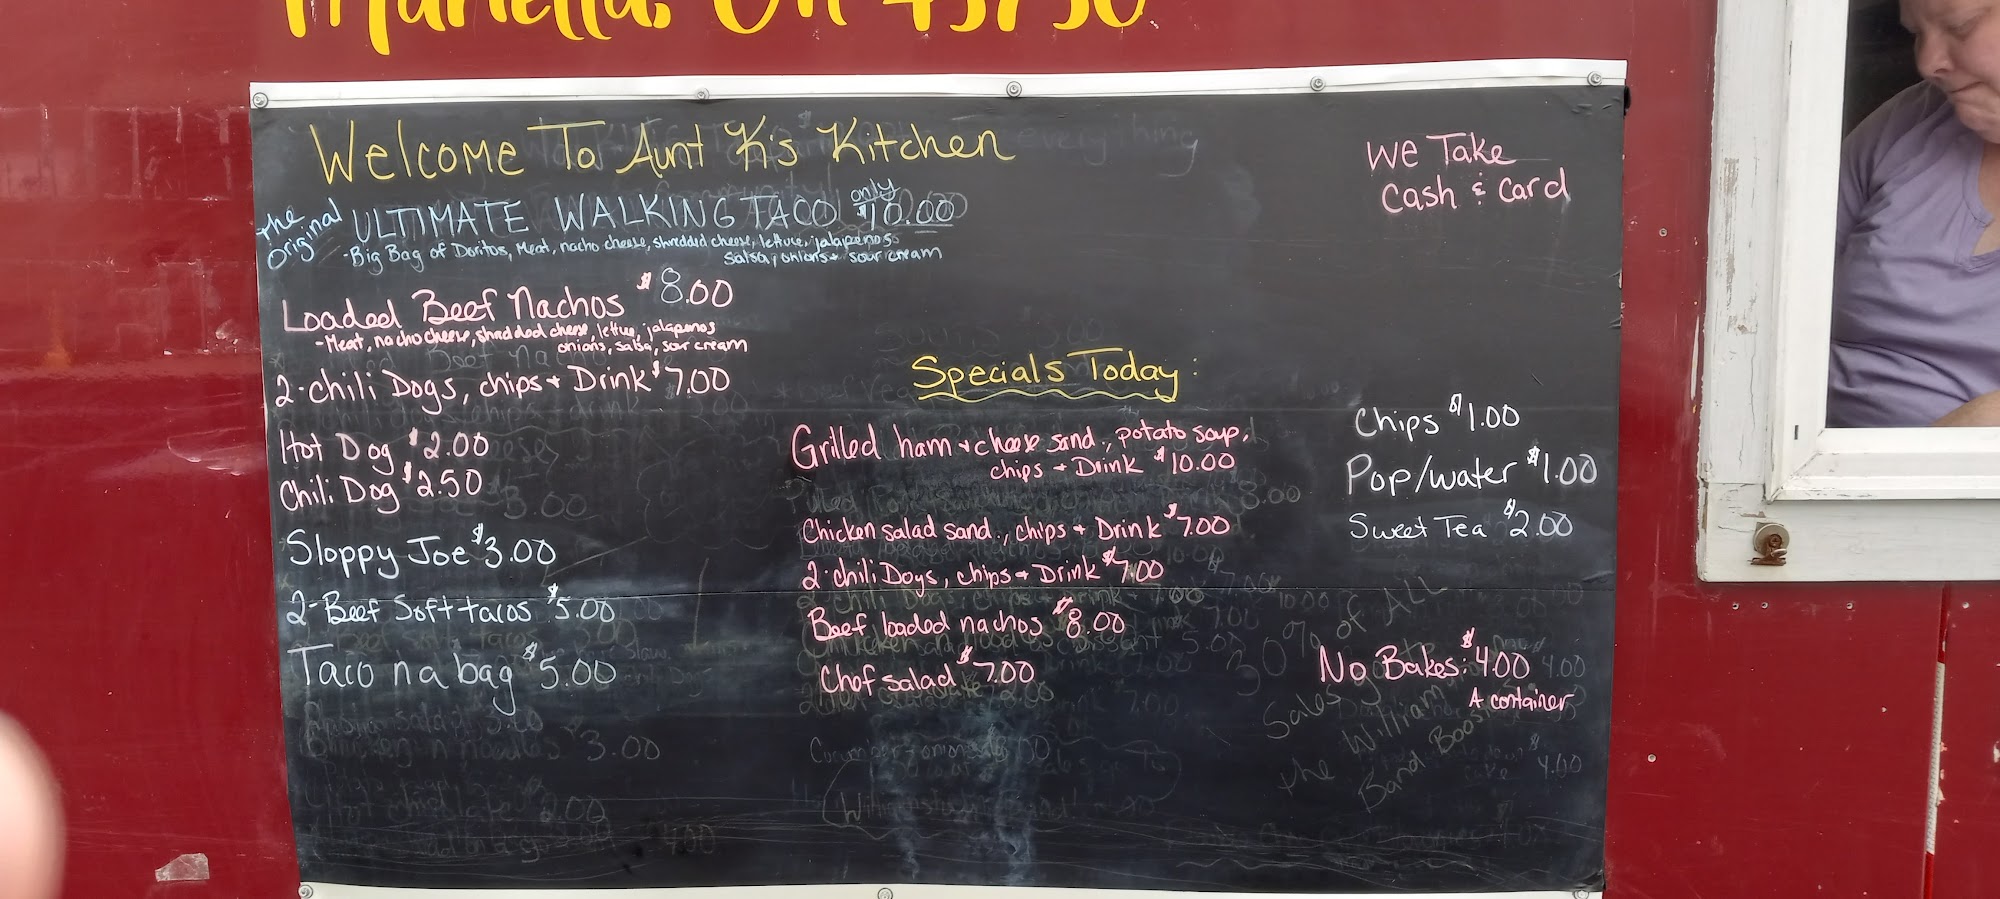 Marietta, OH 45750
Welcome To Aunt K's Kitchen
The Original ULTIMATE WALKING TACO only $10.00
-Big Bag of Doritos, Meat, nacho cheese, shredded cheese, lettuce, jalapenos
salsa, onions + sour cream
Loaded Beef Nachos $8.00
-Meat, nacho cheese, shredded cheese, lettuce, jalapenos
onions, salsa, sour cream
2-chili Dogs, chips + Drink $7.00
Hot Dog $2.00
Chili Dog $2.50
Sloppy Joe $3.00
2-Beef Soft tacos $5.00
Taco n a bag $5.00
Specials Today:
Grilled ham + cheese sand., potato soup,
chips + Drink $10.00
Chicken salad sand., chips + Drink $7.00
2-chili Dogs, chips + Drink $7.00
Beef loaded nachos $8.00
Chef salad $7.00
We Take
Cash & Card
Chips $1.00
Pop/water $1.00
Sweet Tea $2.00
No Bakes: $4.00
A container
30% of ALL
Sales
the William
Band Boost